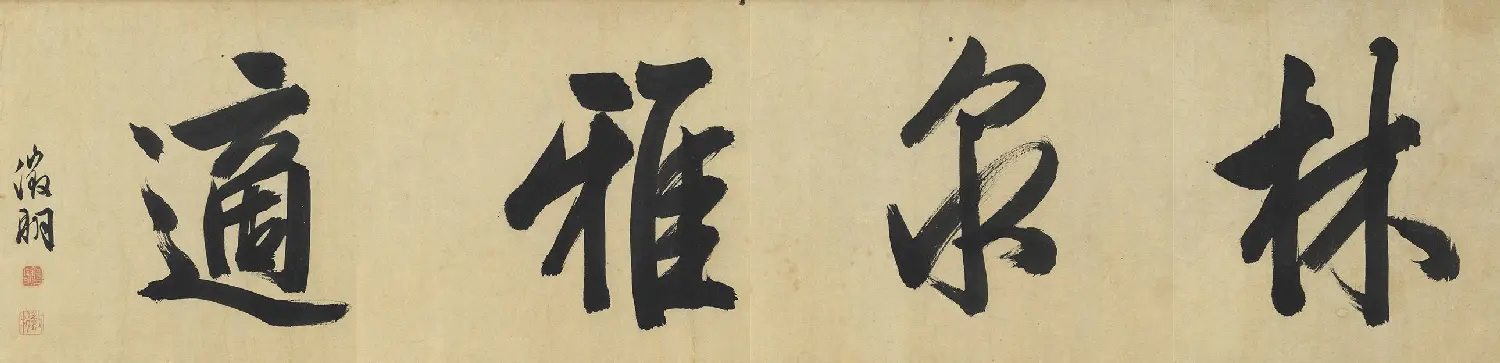 林泉雅適
徵明